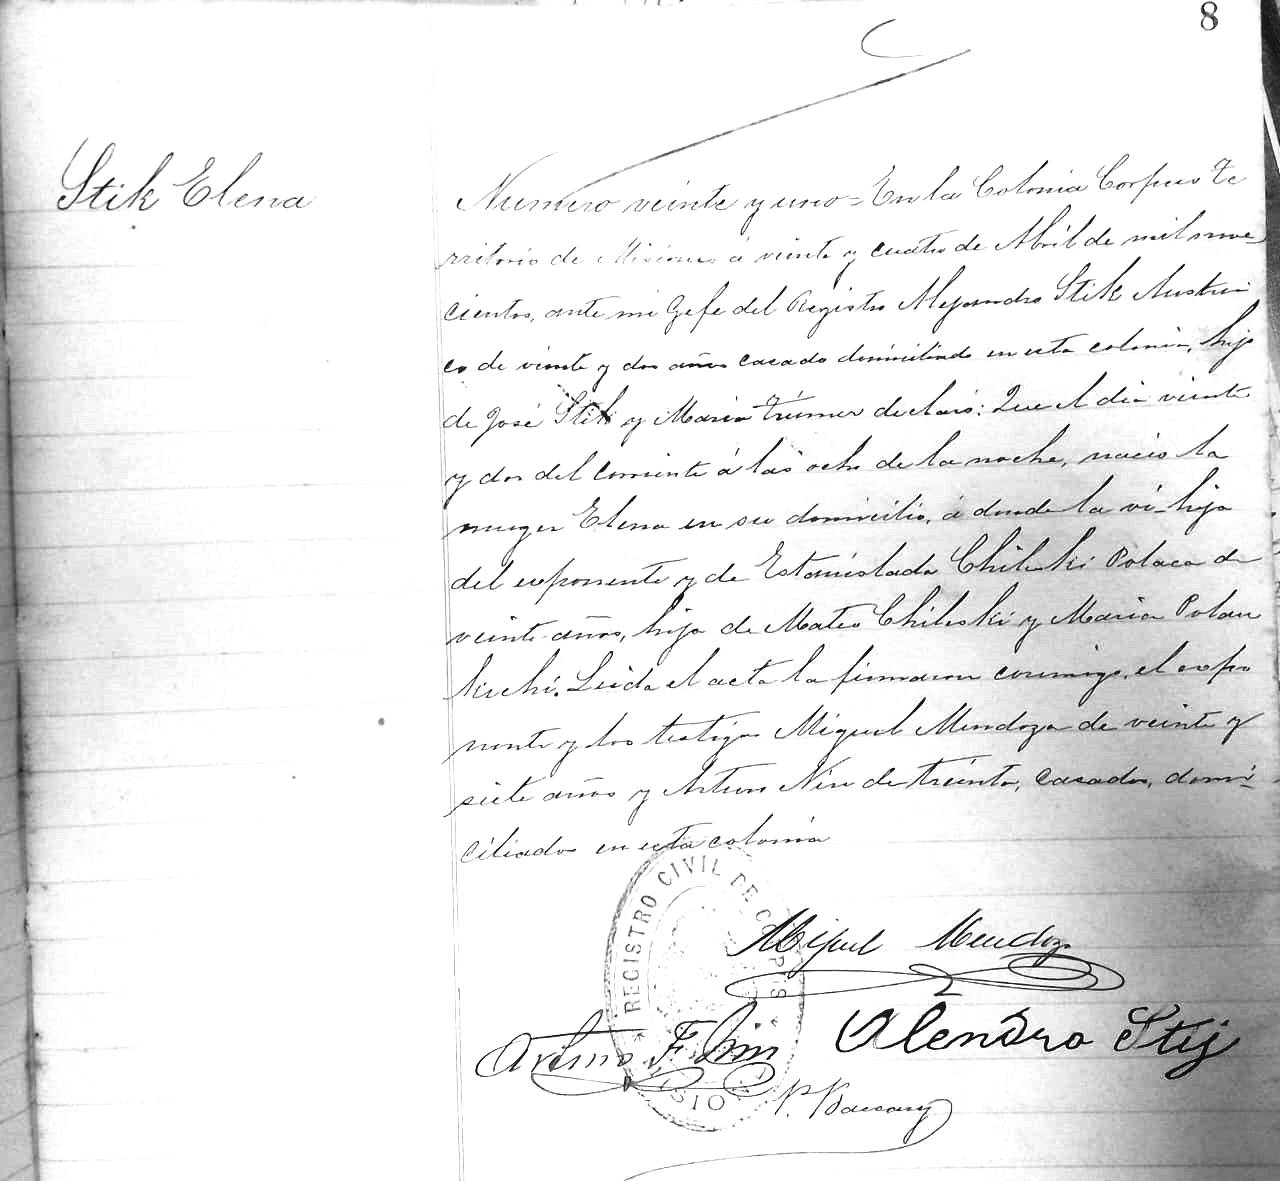 8
Stik Elena
Numero veinte y uno = En la Colonia Corpus Te
rritorio de Misiones á veinte y cuatro de Abril de mil nove
cientos, ante mi Gefe del Registro Alejandro Stik Austria
co de veinte y dos años casado domiciliado en esta colonia, hijo
de José Stik y Maria Trúmer declaró: Que el dia veinte
y dos del corriente á las ocho de la noche, nació la
muger Elena en su domicilio, á donde la ví hija
del exponente y de Estanislada Chileski Polaca de
veinte años, hija de Mateo Chileski y Maria Polau
kichi. Leida el acta la firmaron conmigo, el expo
nente y los testigos Miguel Mendoza de veinte y
siete años y Arturo Nin de treinta, casados, domi-
ciliados en esta colonia
REGISTRO CIVIL DE CORPUS
MISIONES
Miguel Mendoza
Arturo F. Nin
Alendro Stij